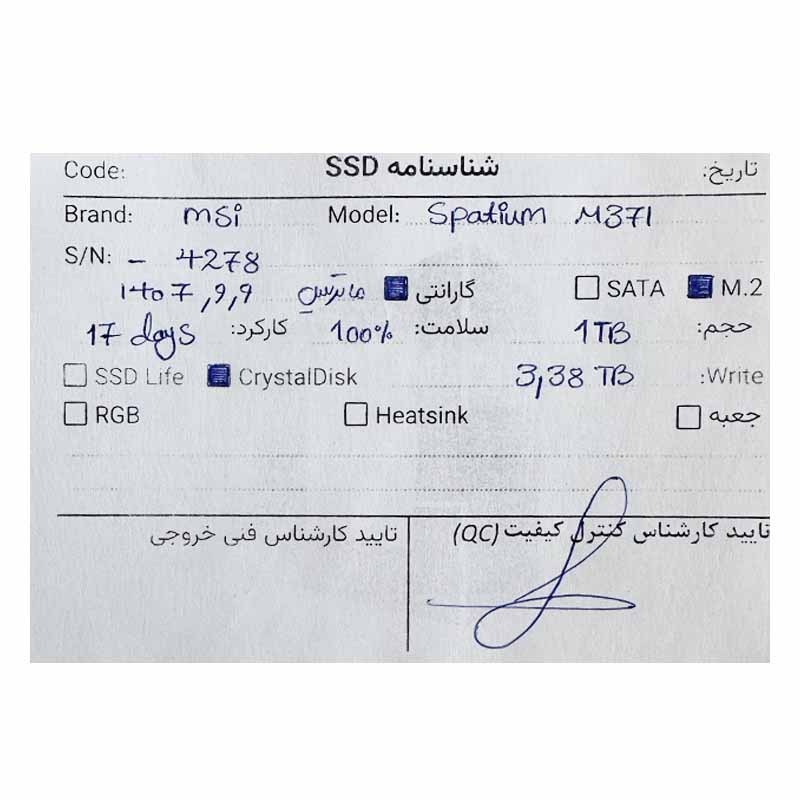 Code: شناسنامه SSD تاریخ:
Brand: msi Model: Spatium M371
S/N: - 4278
1407,9,9 ماتریس گارانتی SATA M.2
17 days کارکرد: 100% سلامت: 1TB حجم:
SSD Life CrystalDisk 3,38 TB Write:
RGB Heatsink جعبه
تایید کارشناس کنترل کیفیت (QC) تایید کارشناس فنی خروجی